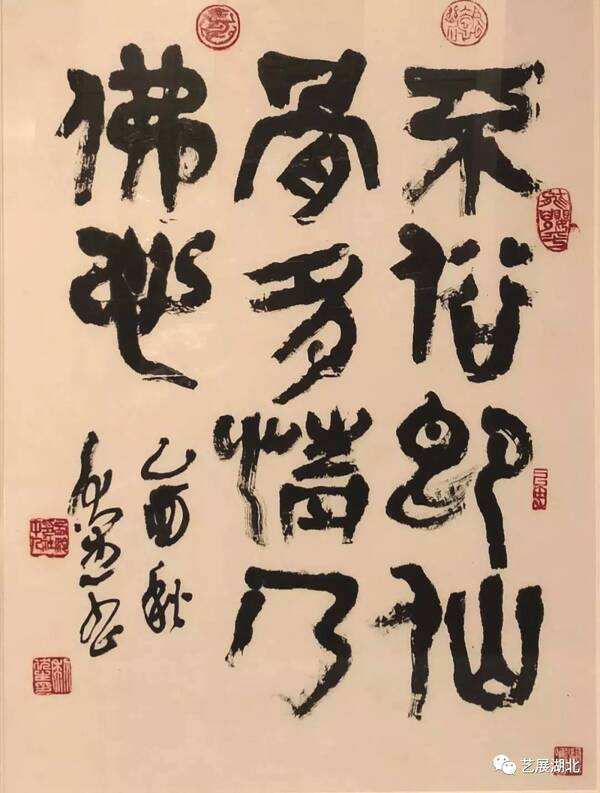 不俗即仙
骨多情乃
佛心
乙酉秋
艺展湖北